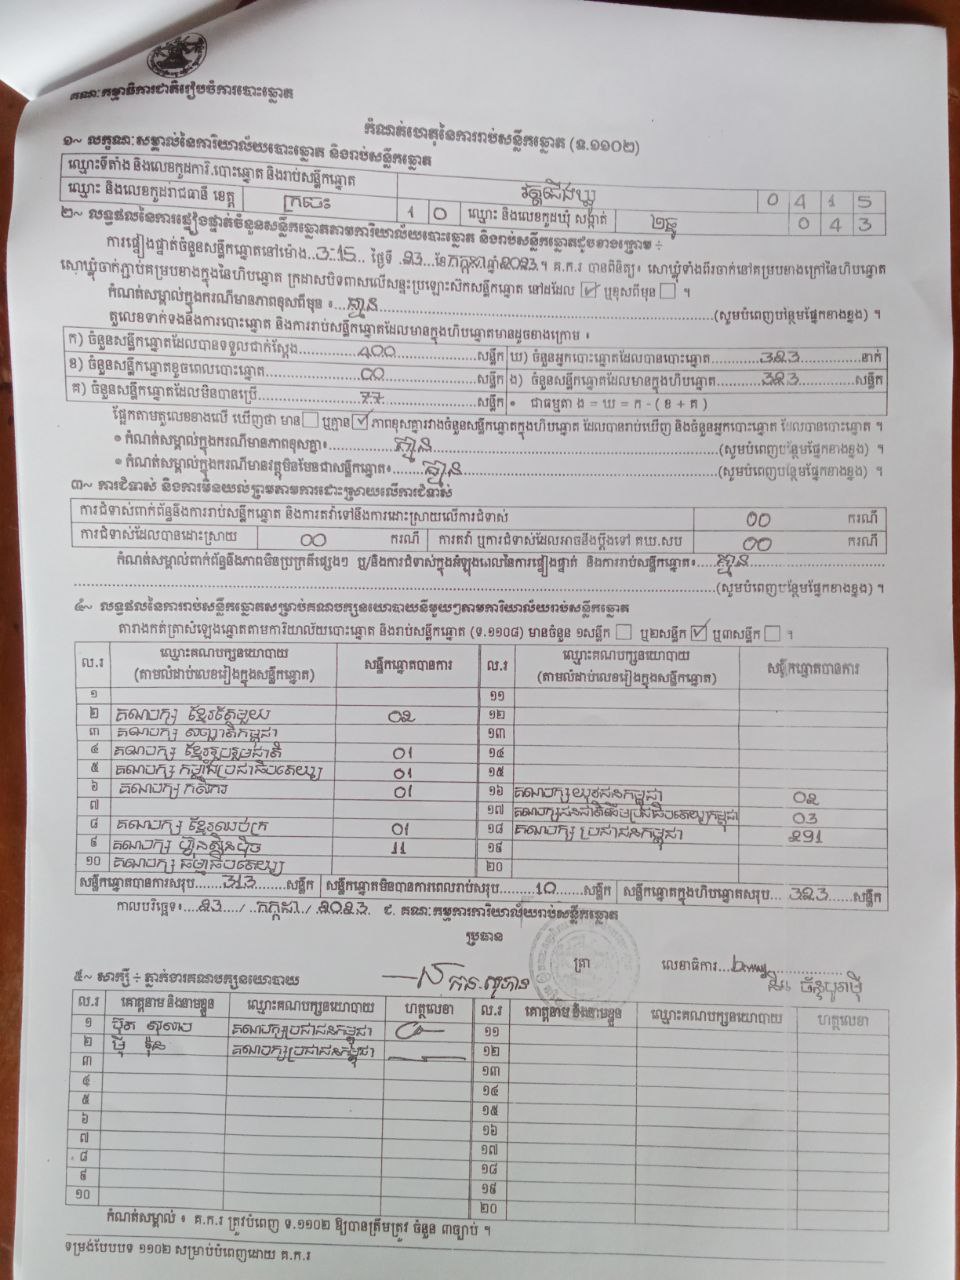 គណៈកម្មាធិការជាតិរៀបចំការបោះឆ្នោត
កំណត់ហេតុនៃការរាប់សន្លឹកឆ្នោត (ទ.១១០២)
១~ លក្ខណៈសម្គាល់នៃការិយាល័យបោះឆ្នោត និងរាប់សន្លឹកឆ្នោត
ឈ្មោះទីតាំង និងលេខកូដការិ.បោះឆ្នោត និងរាប់សន្លឹកឆ្នោត 0 4 1 5
ឈ្មោះ និងលេខកូដរាជធានី ខេត្ត ក្រចេះ 1 0 ឈ្មោះ និងលេខកូដឃុំ សង្កាត់ 0 4 3
២~ លទ្ធផលនៃការផ្ទៀងផ្ទាត់ចំនួនសន្លឹកឆ្នោតតាមការិយាល័យបោះឆ្នោត និងរាប់សន្លឹកឆ្នោតដូចខាងក្រោម ÷
ការផ្ទៀងផ្ទាត់ចំនួនសន្លឹកឆ្នោតនៅម៉ោង..3-15.. ថ្ងៃទី .23..ខែកក្កដាឆ្នាំ2023.។ គ.ក.រ បានពិនិត្យ៖ សោឃ្លុំទាំងពីរចាក់នៅគម្របខាងក្រៅនៃហិបឆ្នោត
សោឃ្លុំចាក់ភ្ជាប់គម្របខាងក្នុងនៃហិបឆ្នោត ក្រដាសបិទពាសលើសន្ទះប្រឡោះស៊កសន្លឹកឆ្នោត នៅដដែល ☑ ឬខុសពីមុន ☐ ។
កំណត់សម្គាល់ក្នុងករណីមានភាពខុសពីមុន ៖....គ្មាន....(សូមបំពេញបន្ថែមផ្នែកខាងខ្នង) ។
តួលេខទាក់ទងនឹងការបោះឆ្នោត និងការរាប់សន្លឹកឆ្នោតដែលមានក្នុងហិបឆ្នោតមានដូចខាងក្រោម ៖
ក) ចំនួនសន្លឹកឆ្នោតដែលបានទទួលជាក់ស្ដែង....400....សន្លឹក ឃ) ចំនួនអ្នកបោះឆ្នោតដែលបានបោះឆ្នោត....323....នាក់
ខ) ចំនួនសន្លឹកឆ្នោតខូចពេលបោះឆ្នោត....00....សន្លឹក ង) ចំនួនសន្លឹកឆ្នោតដែលមានក្នុងហិបឆ្នោត....323....សន្លឹក
គ) ចំនួនសន្លឹកឆ្នោតដែលមិនបានប្រើ....77....សន្លឹក • ជាធម្មតា ង = ឃ = ក - ( ខ + គ )
ផ្អែកតាមតួលេខខាងលើ ឃើញថា មាន ☐ ឬគ្មាន ☑ ភាពខុសគ្នារវាងចំនួនសន្លឹកឆ្នោតក្នុងហិបឆ្នោត ដែលបានរាប់ឃើញ និងចំនួនអ្នកបោះឆ្នោត ដែលបានបោះឆ្នោត ។
• កំណត់សម្គាល់ក្នុងករណីមានភាពខុសគ្នា៖....គ្មាន....(សូមបំពេញបន្ថែមផ្នែកខាងខ្នង) ។
• កំណត់សម្គាល់ក្នុងករណីមានវត្ថុមិនមែនជាសន្លឹកឆ្នោត៖....គ្មាន....(សូមបំពេញបន្ថែមផ្នែកខាងខ្នង) ។
៣~ ការជំទាស់ និងការមិនយល់ព្រមតាមការដោះស្រាយលើការជំទាស់
ការជំទាស់ពាក់ព័ន្ធនឹងការរាប់សន្លឹកឆ្នោត និងការតវ៉ាទៅនឹងការដោះស្រាយលើការជំទាស់ 00 ករណី
ការជំទាស់ដែលបានដោះស្រាយ 00 ករណី ការតវ៉ា ឬការជំទាស់ដែលអាចនឹងប្ដឹងទៅ គឃ.សប 00 ករណី
កំណត់សម្គាល់ពាក់ព័ន្ធនឹងភាពមិនប្រក្រតីផ្សេងៗ ឬ/និងការជំទាស់ក្នុងអំឡុងពេលនៃការផ្ទៀងផ្ទាត់ និងការរាប់សន្លឹកឆ្នោត៖....គ្មាន....
....(សូមបំពេញបន្ថែមផ្នែកខាងខ្នង) ។
៤~ លទ្ធផលនៃការរាប់សន្លឹកឆ្នោតសម្រាប់គណបក្សនយោបាយនីមួយៗតាមការិយាល័យរាប់សន្លឹកឆ្នោត
តារាងកត់ត្រាសំឡេងឆ្នោតតាមការិយាល័យបោះឆ្នោត និងរាប់សន្លឹកឆ្នោត (ទ.១១០៨) មានចំនួន ១សន្លឹក ☐ ឬ២សន្លឹក ☑ ឬ៣សន្លឹក ☐ ។
ល.រ ឈ្មោះគណបក្សនយោបាយ (តាមលំដាប់លេខរៀងក្នុងសន្លឹកឆ្នោត) សន្លឹកឆ្នោតបានការ ល.រ ឈ្មោះគណបក្សនយោបាយ (តាមលំដាប់លេខរៀងក្នុងសន្លឹកឆ្នោត) សន្លឹកឆ្នោតបានការ
១ ១១
២ គណបក្ស ខ្មែរតែមួយ 02 ១២
៣ គណបក្ស សញ្ជាតិកម្ពុជា ១៣
៤ គណបក្ស ខ្មែររួបរួមជាតិ 01 ១៤
៥ គណបក្ស កម្លាំងប្រជាធិបតេយ្យ 01 ១៥
៦ គណបក្ស កសិករ 01 ១៦ គណបក្ស យុវជនកម្ពុជា 02
៧ ១៧ គណបក្សជនជាតិដើមប្រជាធិបតេយ្យកម្ពុជា 03
៨ គណបក្ស ខ្មែរឈប់ក្រ 01 ១៨ គណបក្ស ប្រជាជនកម្ពុជា 291
៩ គណបក្ស ហ៊្វុនស៊ិនប៉ិច 11 ១៩
១០ គណបក្ស ធម្មាធិបតេយ្យ ២០
សន្លឹកឆ្នោតបានការសរុប....313....សន្លឹក សន្លឹកឆ្នោតមិនបានការពេលរាប់សរុប....10....សន្លឹក សន្លឹកឆ្នោតក្នុងហិបឆ្នោតសរុប...323....សន្លឹក
កាលបរិច្ឆេទ៖...23.../ ..កក្កដា../ .2023. ជ. គណៈកម្មការការិយាល័យរាប់សន្លឹកឆ្នោត
ប្រធាន
ត្រា លេខាធិការ
៥~ សាក្សី ÷ ភ្នាក់ងារគណបក្សនយោបាយ
ល.រ គោត្តនាម និងនាមខ្លួន ឈ្មោះគណបក្សនយោបាយ ហត្ថលេខា ល.រ គោត្តនាម និងនាមខ្លួន ឈ្មោះគណបក្សនយោបាយ ហត្ថលេខា
១ គណបក្សប្រជាជនកម្ពុជា ១១
២ គណបក្សប្រជាជនកម្ពុជា ១២
៣ ១៣
៤ ១៤
៥ ១៥
៦ ១៦
៧ ១៧
៨ ១៨
៩ ១៩
១០ ២០
កំណត់សម្គាល់ ៖ គ.ក.រ ត្រូវបំពេញ ទ.១១០២ ឱ្យបានត្រឹមត្រូវ ចំនួន ៣ច្បាប់ ។
ទម្រង់បែបបទ ១១០២ សម្រាប់បំពេញដោយ គ.ក.រ